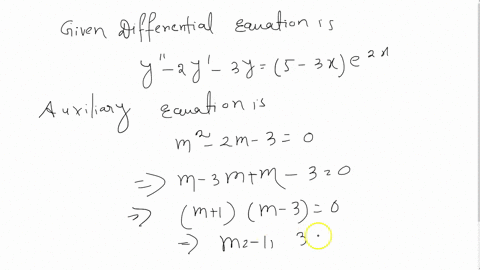 Given Differential Equation is
y'' - 2y' - 3y = (5 - 3x) e^{2x}
Auxiliary Equation is
m² - 2m - 3 = 0
⇒ m - 3m + m - 3 = 0
⇒ (m+1) (m-3) = 0
⇒ m = -1, 3